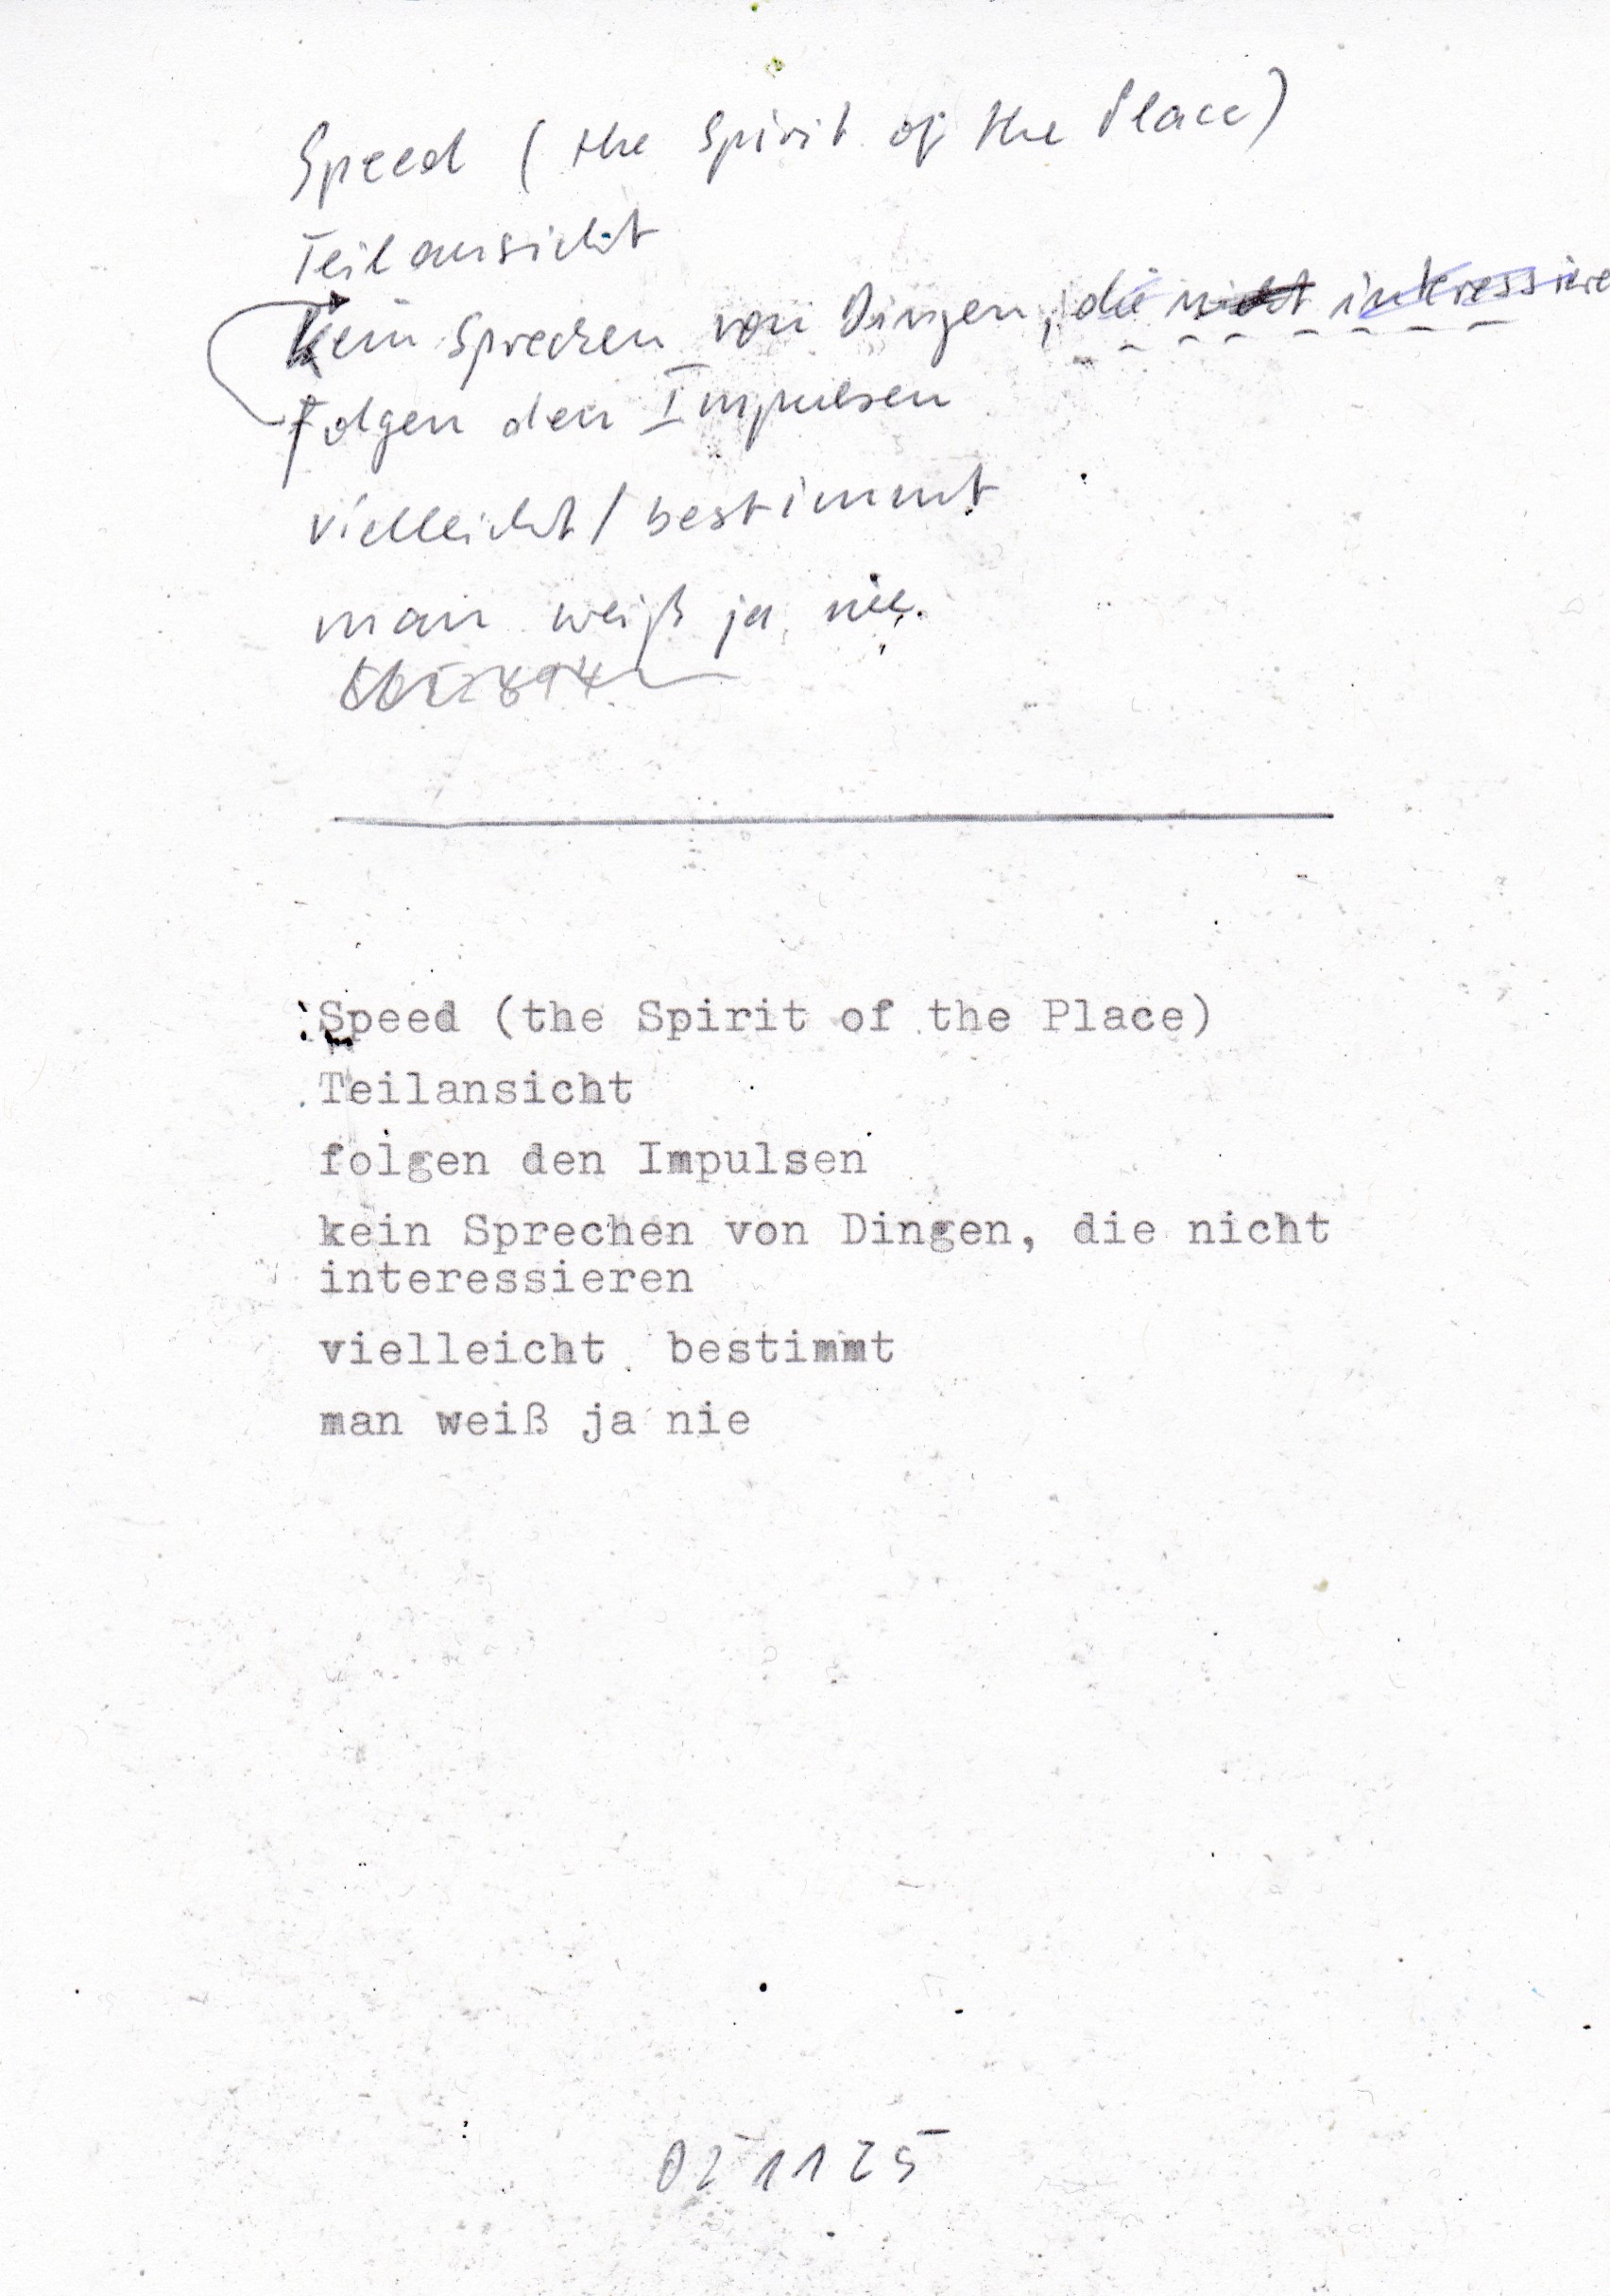 Speed (the Spirit of the Place)
Teilansicht
Kein Sprechen von Dingen, die nicht interessiere
folgen den Impulsen
vielleicht / bestimmt
man weiß ja nie.
Speed (the Spirit of the Place)
Teilansicht
folgen den Impulsen
kein Sprechen von Dingen, die nicht
interessieren
vielleicht bestimmt
man weiß ja nie
02 11 25